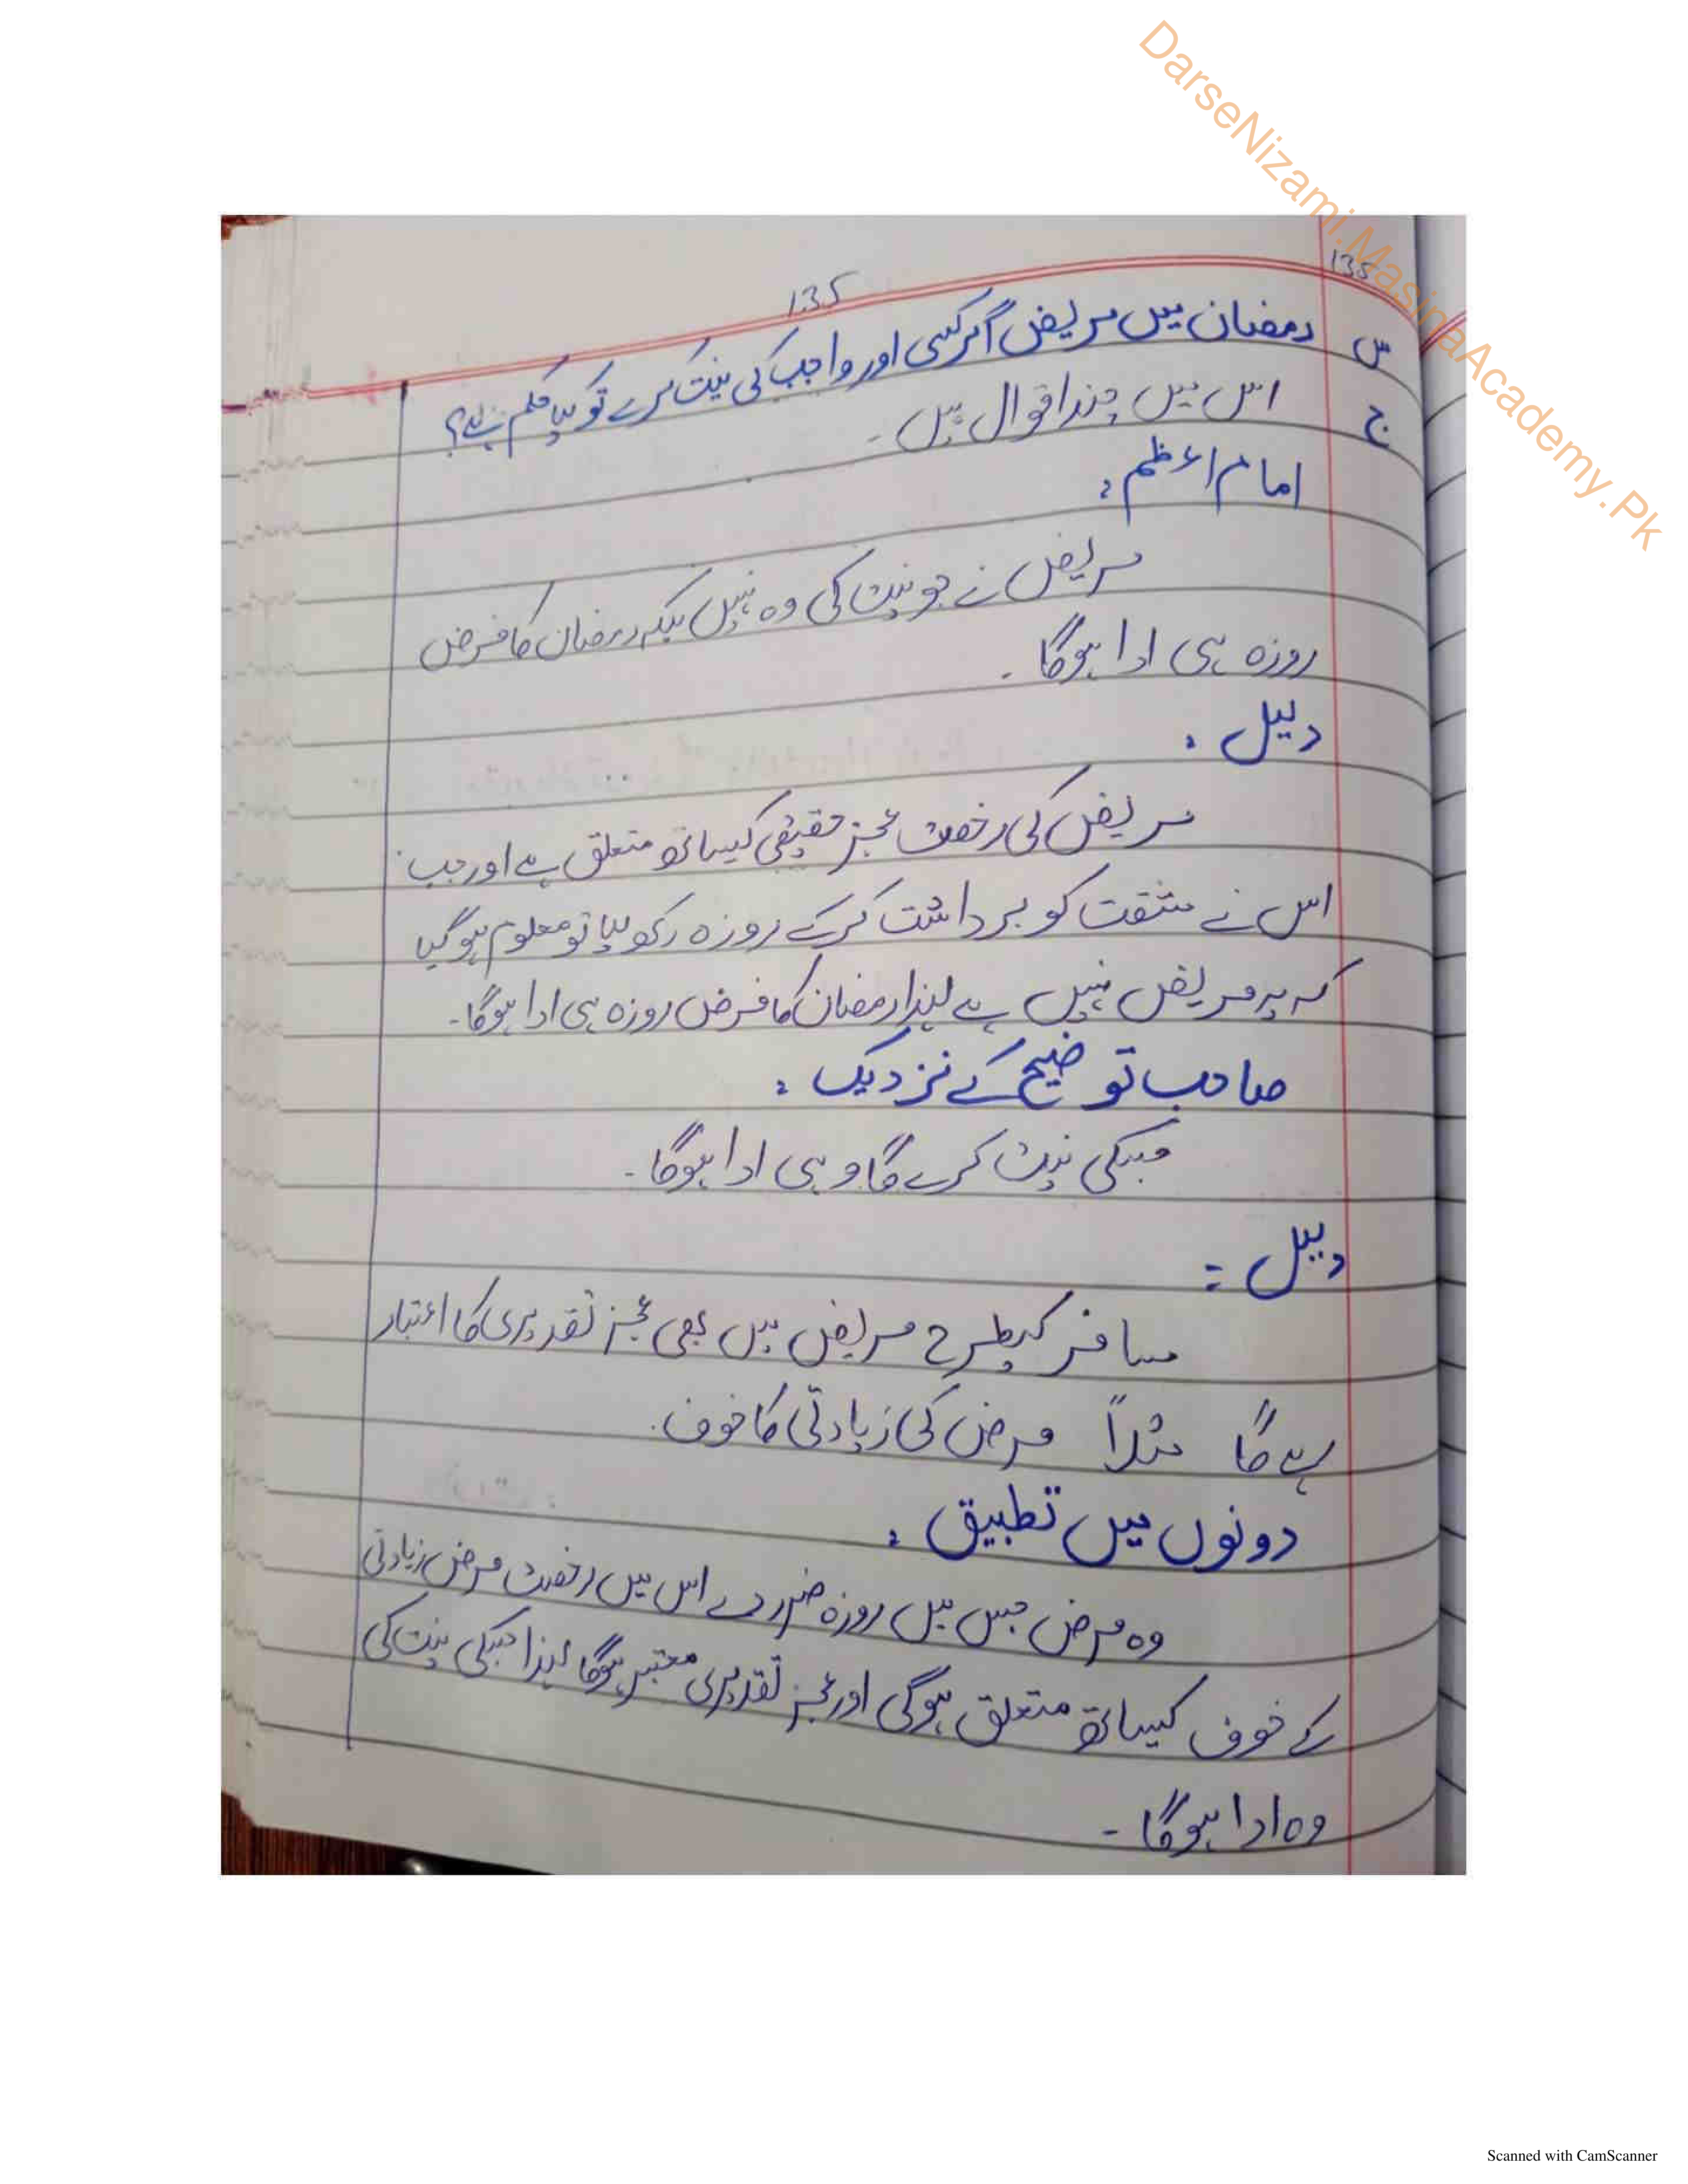 DarseNizami.MasinaAcademy.Pk
135
135
س رمضان میں مریض اگر کسی اور واجب کی نیت کرے تو کیا حکم ہے؟
ج اس میں چند اقوال ہیں ۔
امام اعظم :
مریض نے جو نیت کی وہ نہیں بلکہ رمضان کا فرض
روزہ ہی ادا ہوگا ۔
دلیل :
مریض کی رخصت عجز حقیقی کیساتھ متعلق ہے اور جب
اس نے مشقت کو برداشت کرکے روزہ رکھ لیا تو معلوم ہوگیا
کہ یہ مریض نہیں ہے لہذا رمضان کا فرض روزہ ہی ادا ہوگا۔
صاحب توضیح کے نزدیک :
جسکی نیت کرے گا وہی ادا ہوگا ۔
دلیل :
مسافر کیطرح مریض میں بھی عجز تقدیری کا اعتبار
ہے گا مثلاً مرض کی زیادتی کا خوف ۔
دونوں میں تطبیق :
وہ مرض جس میں روزہ ضرر دے اس میں رخصت مرض زیادتی
کے خوف کیساتھ متعلق ہوگی اور عجز تقدیری معتبر ہوگا لہذا جسکی نیت کی
وہ ادا ہوگا ۔
Scanned with CamScanner